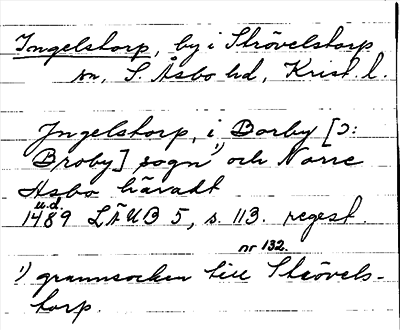 Ingelstorp, by i Strövelstorp
sn, S. Åsbo hd, Krist. l.
Jngelstorp, i Borby [ɔ:
Broby] sogn¹⁾ och Norre
Asbo häradt
u.d.
1489 LÄUB 5, s. 113. regest.
nr 132.
¹⁾ grannsocken till Strövels-
torp.